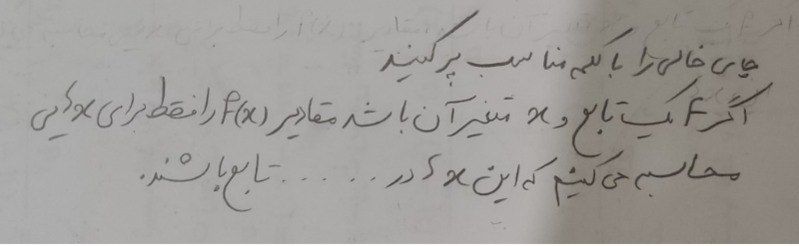 جای خالی را با کلمه مناسب پر کنید
اگر f یک تابع و x متغیر آن باشد مقادیر f(x) را فقط برای x هایی
محاسبه می کنیم که این x ها در ...... تابع باشند.